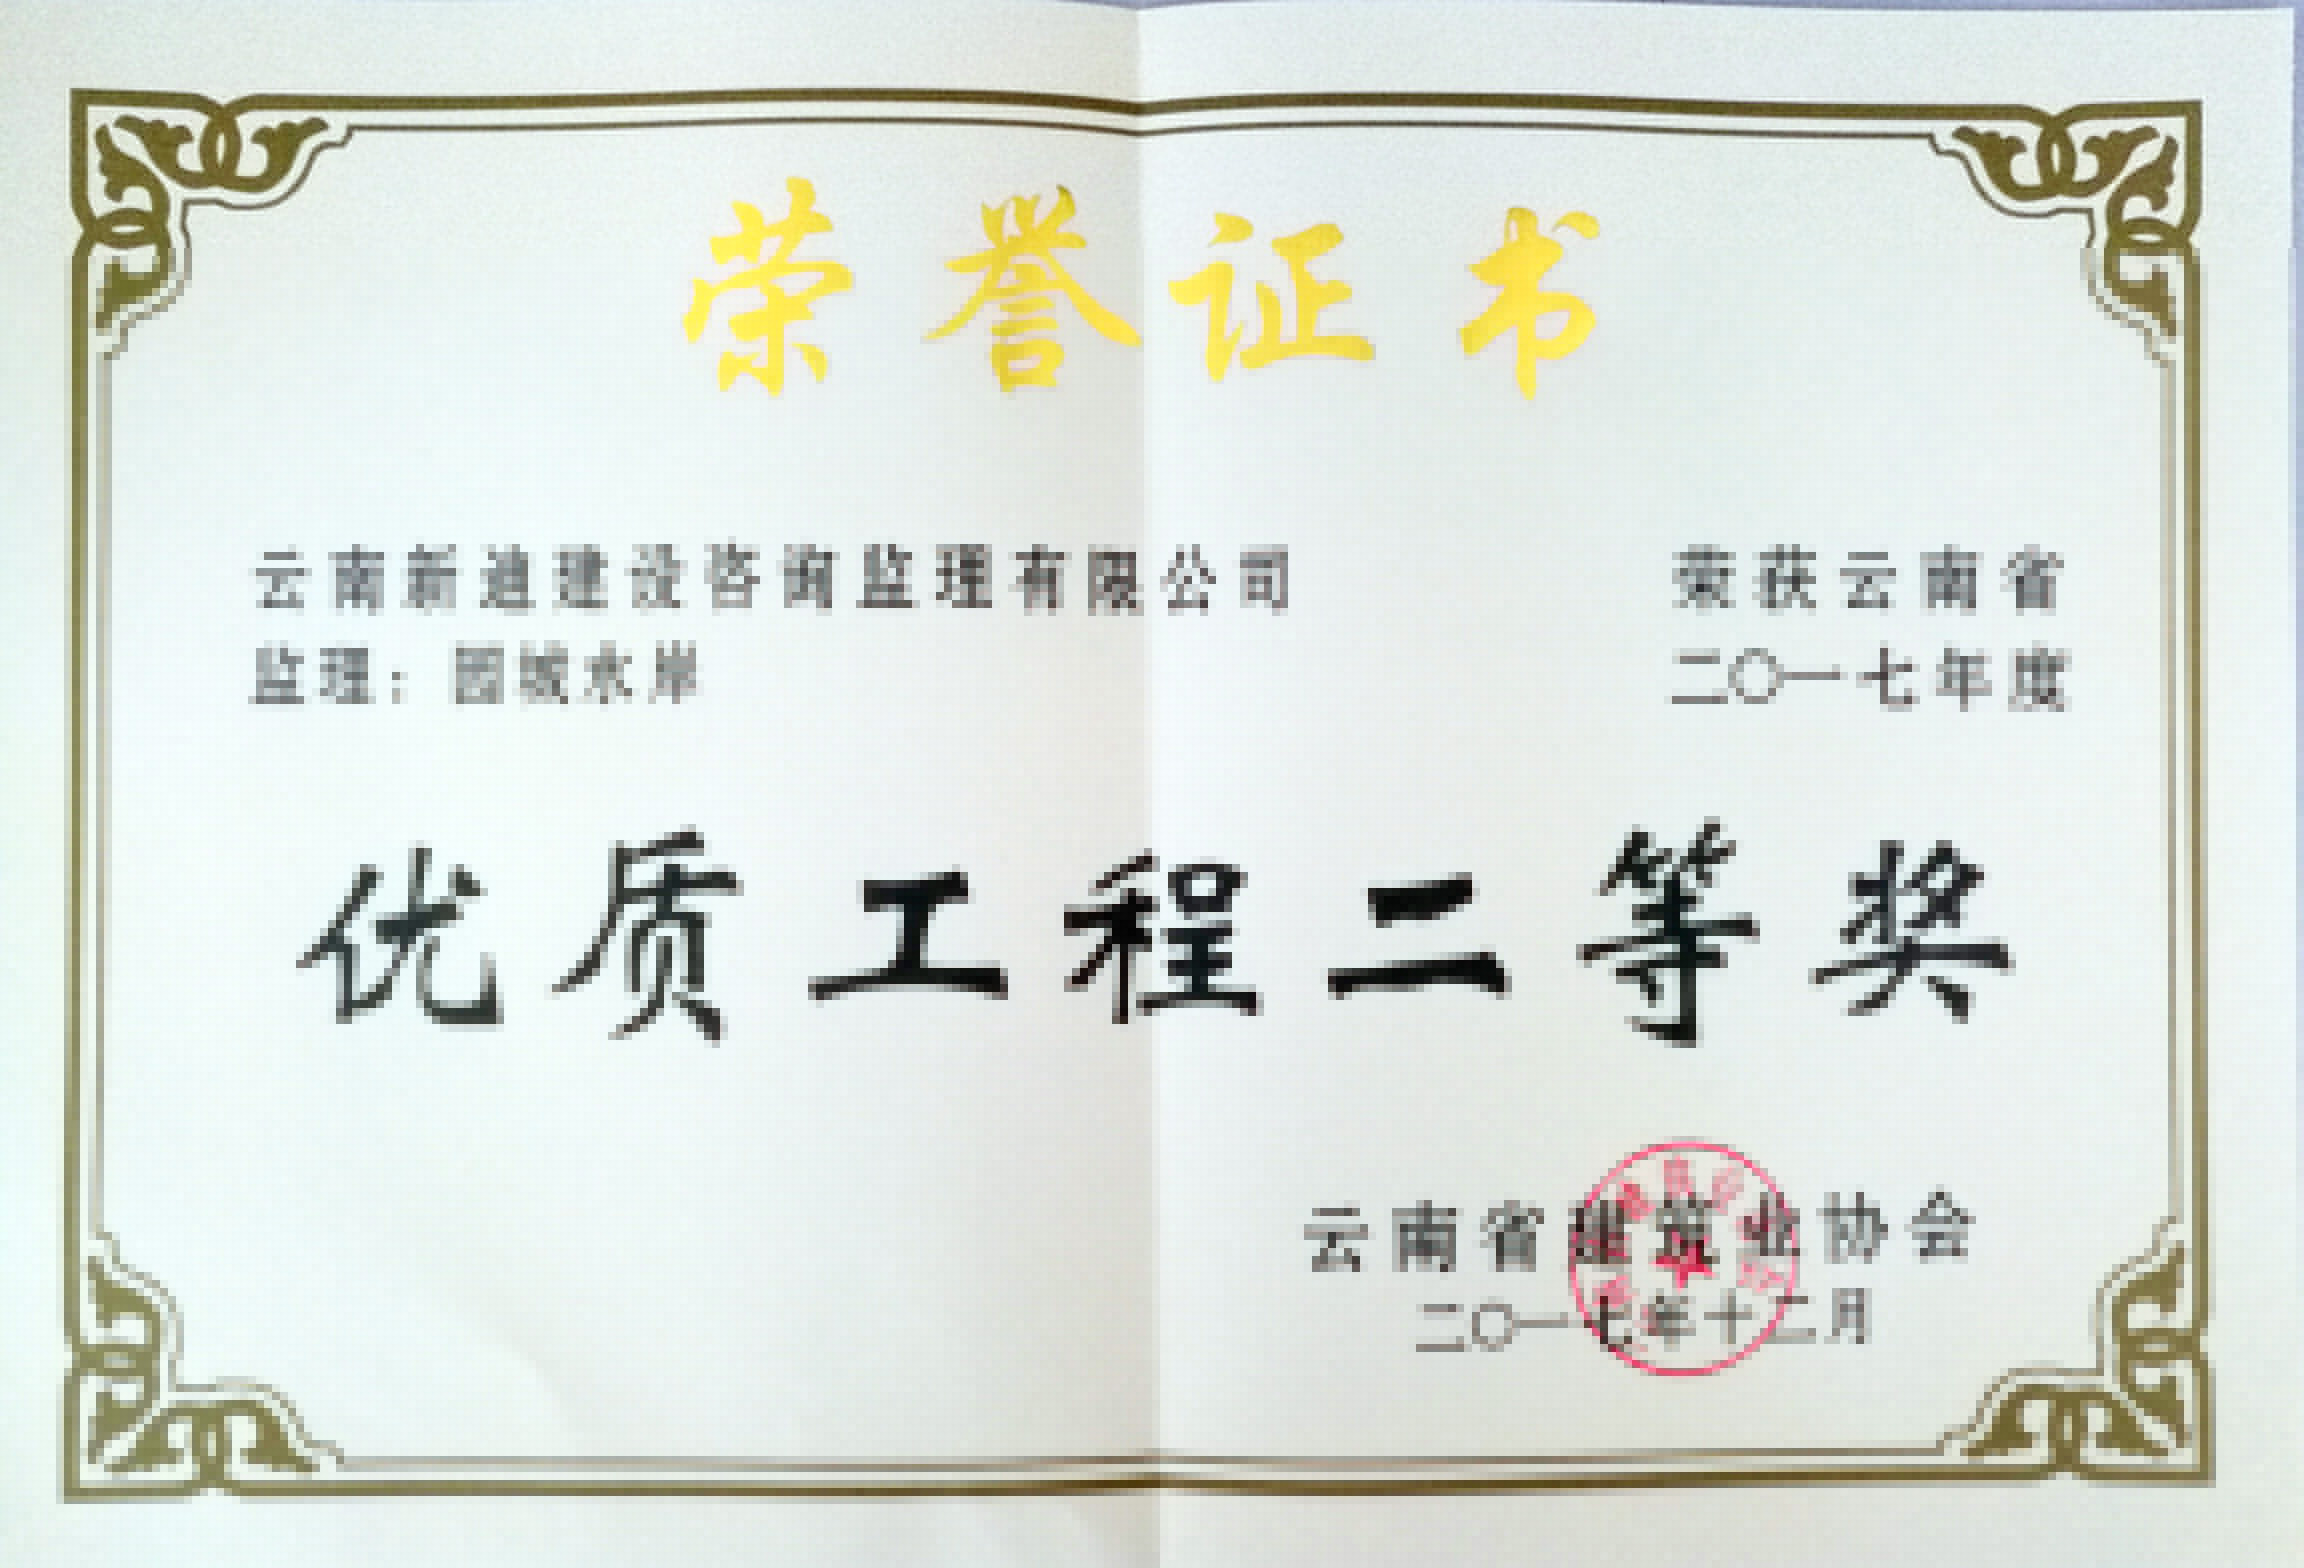 荣誉证书
云南新迪建设咨询监理有限公司 荣获云南省
监理：园坡水岸 二〇一七年度
优质工程二等奖
云南省建筑业协会
二〇一七年十二月